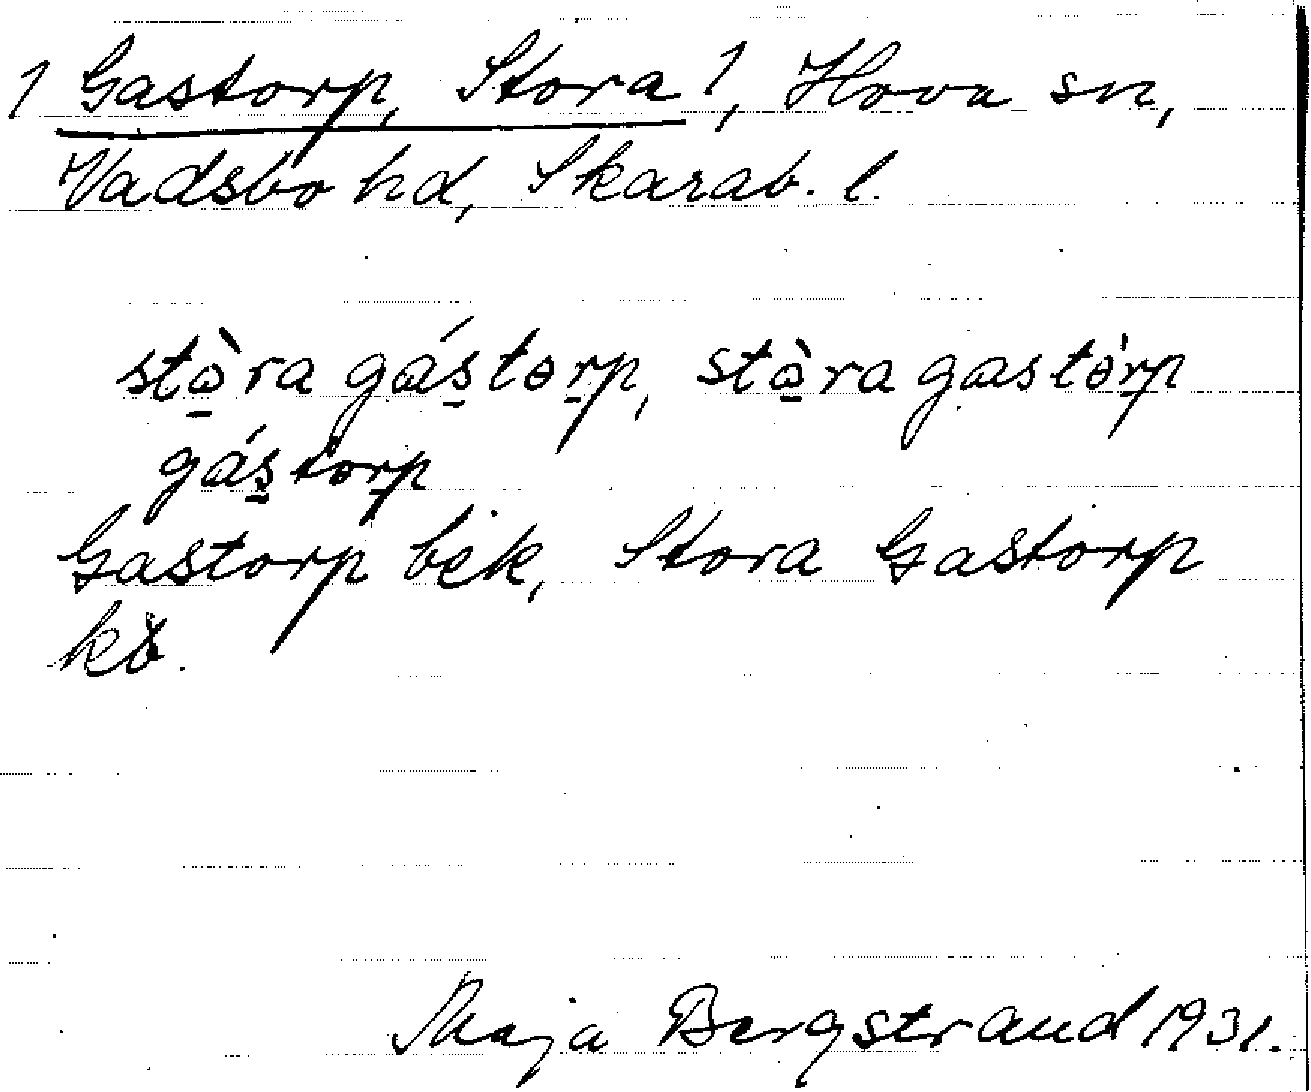 1 Gastorp, Stora 1, Hova sn,
Vadsbo hd, Skarab. l.
stò̱ra gás̱toṟp, stò̱ra gastóṟp
gás̱toṟp
Gastorp bek, Stora Gastorp
kö.
Maja Bergstrand 1931.